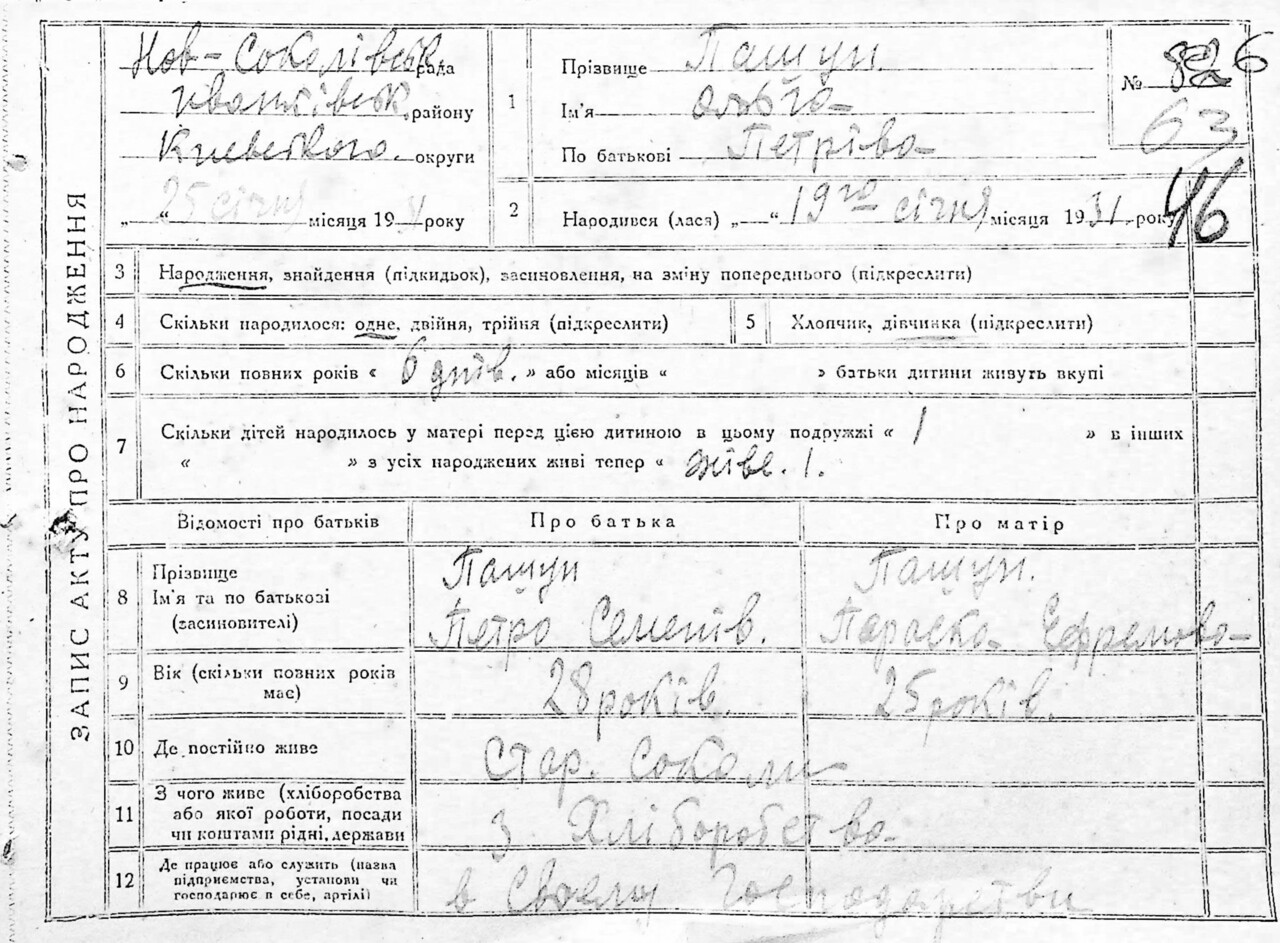 ЗАПИС АКТУ ПРО НАРОДЖЕННЯ
Нов-Соколівськ рада
району
Киевського округи
„ “ 25 січня місяця 19 31 року
1
Прізвище Пашун
Ім'я Ольга
По батькові Петрівa
№ 6
63
46
2
Народився (лася) „ “ 19го січня місяця 1931 року
3 Народження, знайдення (підкидьок), засиновлення, на зміну попереднього (підкреслити)
4 Скільки народилося: одне, двійня, трійня (підкреслити)
5 Хлопчик, дівчинка (підкреслити)
6 Скільки повних років « 6 днів. » або місяців « » батьки дитини живуть вкупі
7 Скільки дітей народилось у матері перед цією дитиною в цьому подружжі « 1 » в інших
« » з усіх народжених живі тепер « живе. 1.
Відомості про батьків Про батька Про матір
8 Прізвище
Ім'я та по батькові
(засиновителі)
Пашун
Петро Семенів.
Пашун.
Параска Ефремова
9 Вік (скільки повних років
має)
28 років.
25 років.
10 Де постійно живе
Стар. Соколи
11 З чого живе (хліборобства
або якої роботи, посади
чи коштами рідні, держави
з Хліборобства
12 Де працює або служить (назва
підприємства, установи чи
господарює в себе, артілі)
в Своему Господарстви